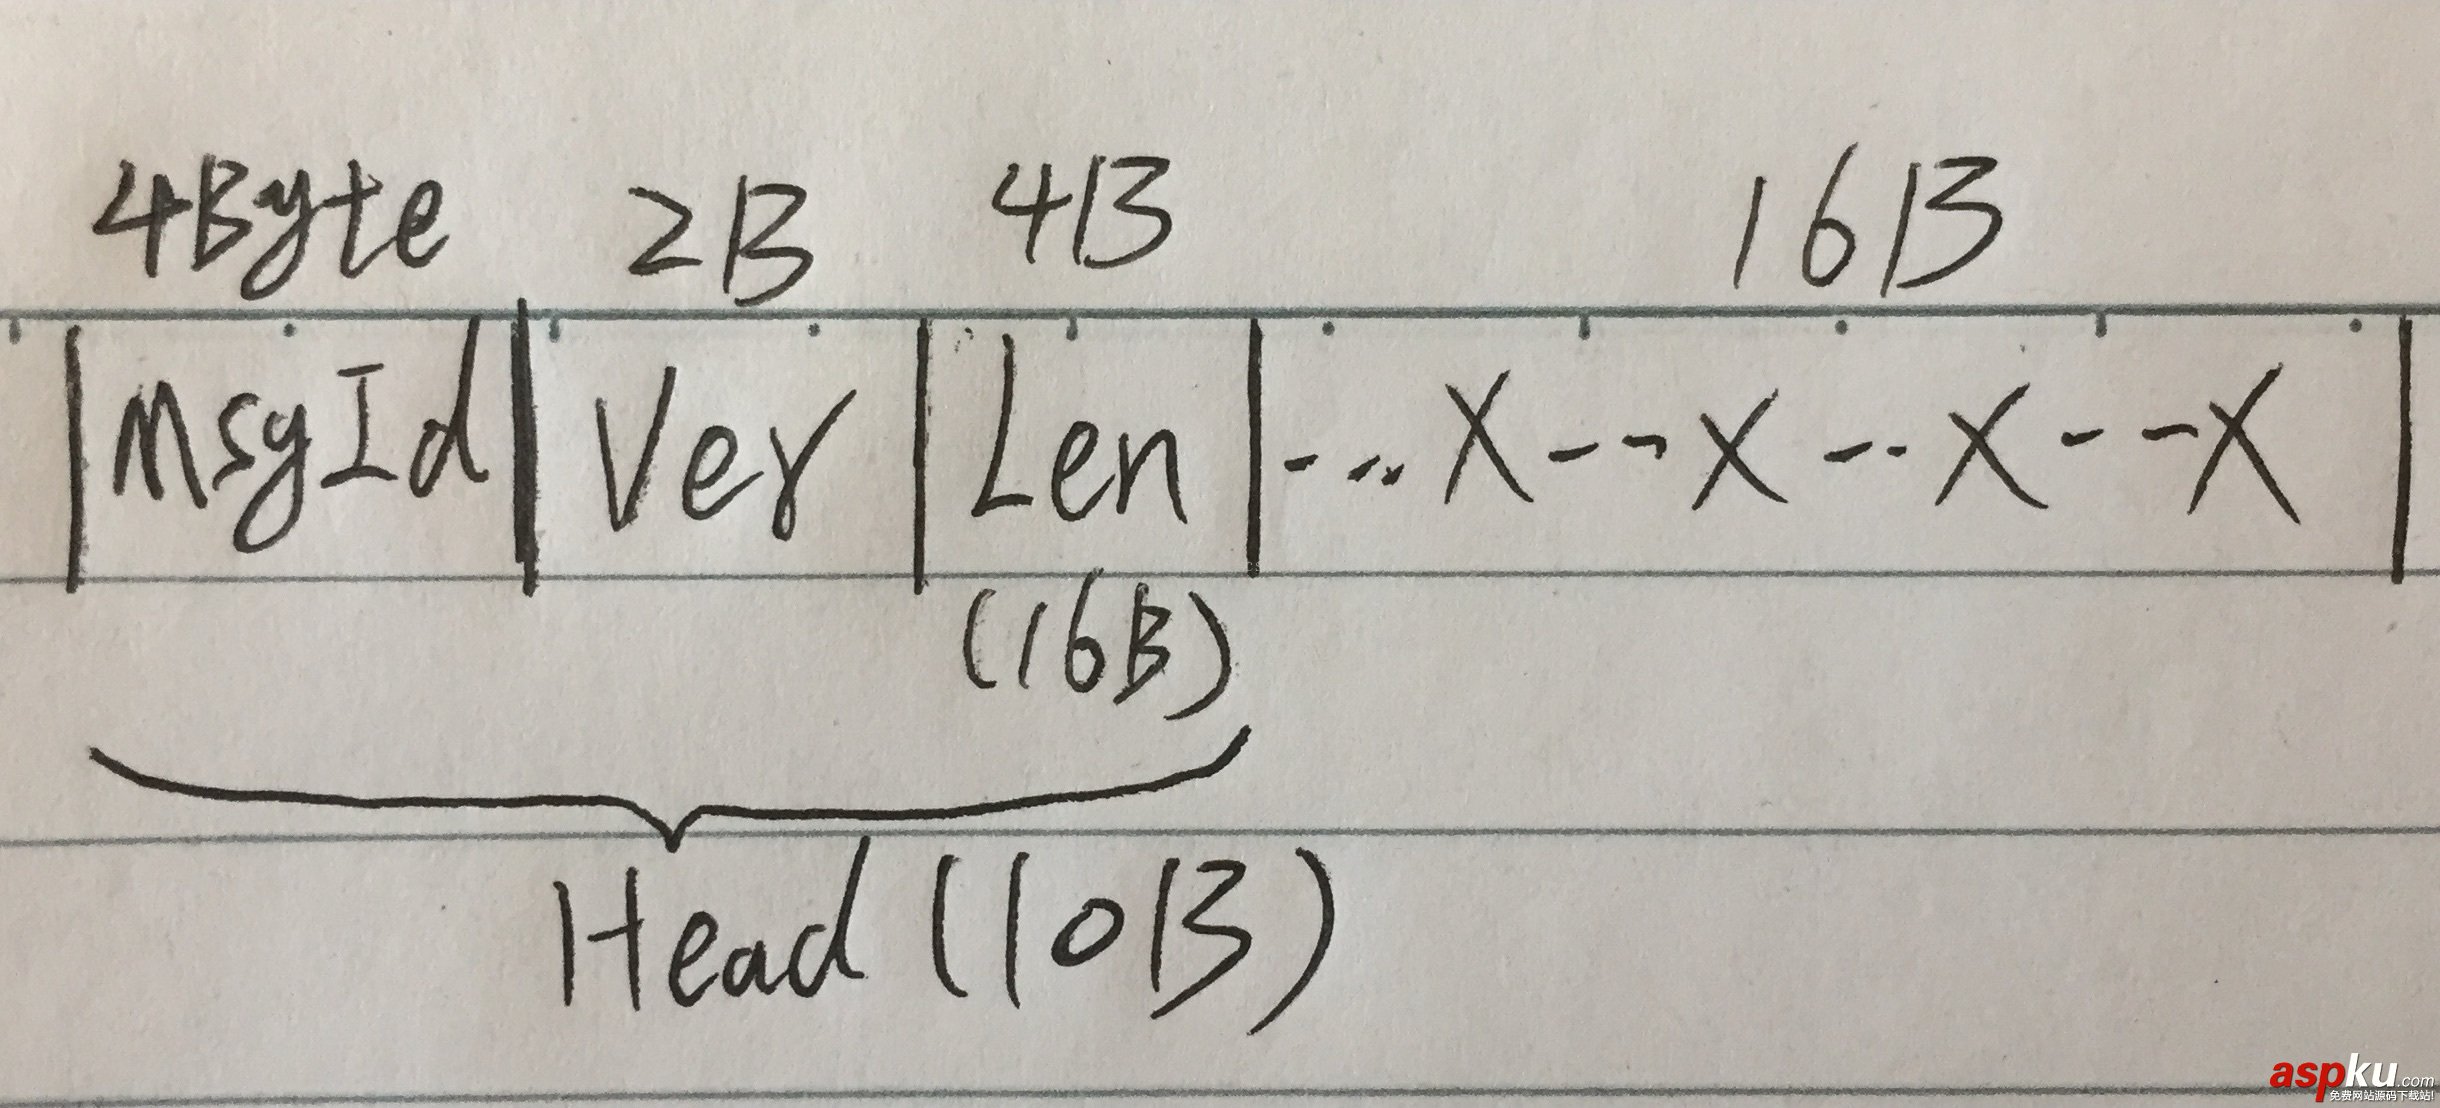 4Byte 2B 4B 16B
|MsgId|Ver|Len|--...X---X---X---X|
(16B)
Head (10B)
aspku.com
免费网站源码下载站!